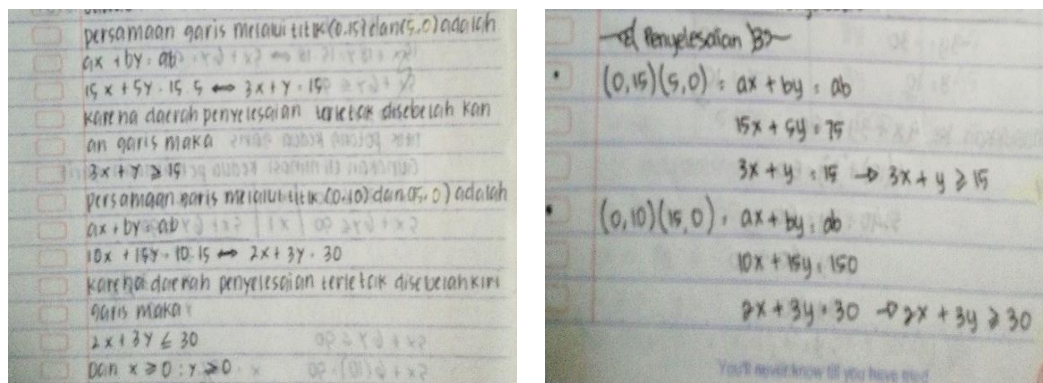 persamaan garis melalui titik (0,15) dan (5,0) adalah
ax + by = ab
15x + 5y = 15.5 ⟺ 3x + y = 15
karena daerah penyelesaian terletak disebelah kan
an garis maka
3x + y ≥ 15
persamaan garis melalui titik (0,10) dan (15,0) adalah
ax + by = ab
10x + 15y = 10.15 ⟺ 2x + 3y = 30
karena daerah penyelesaian terletak disebelah kiri
garis maka
2x + 3y ≤ 30
Dan x ≥ 0 : y ≥ 0
Penyelesaian B
• (0,15)(5,0) = ax + by = ab
15x + 5y = 75
3x + y = 15 → 3x + y ≥ 15
• (0,10)(15,0) = ax + by = ab
10x + 15y = 150
2x + 3y = 30 → 2x + 3y ≥ 30
You'll never know till you have tried